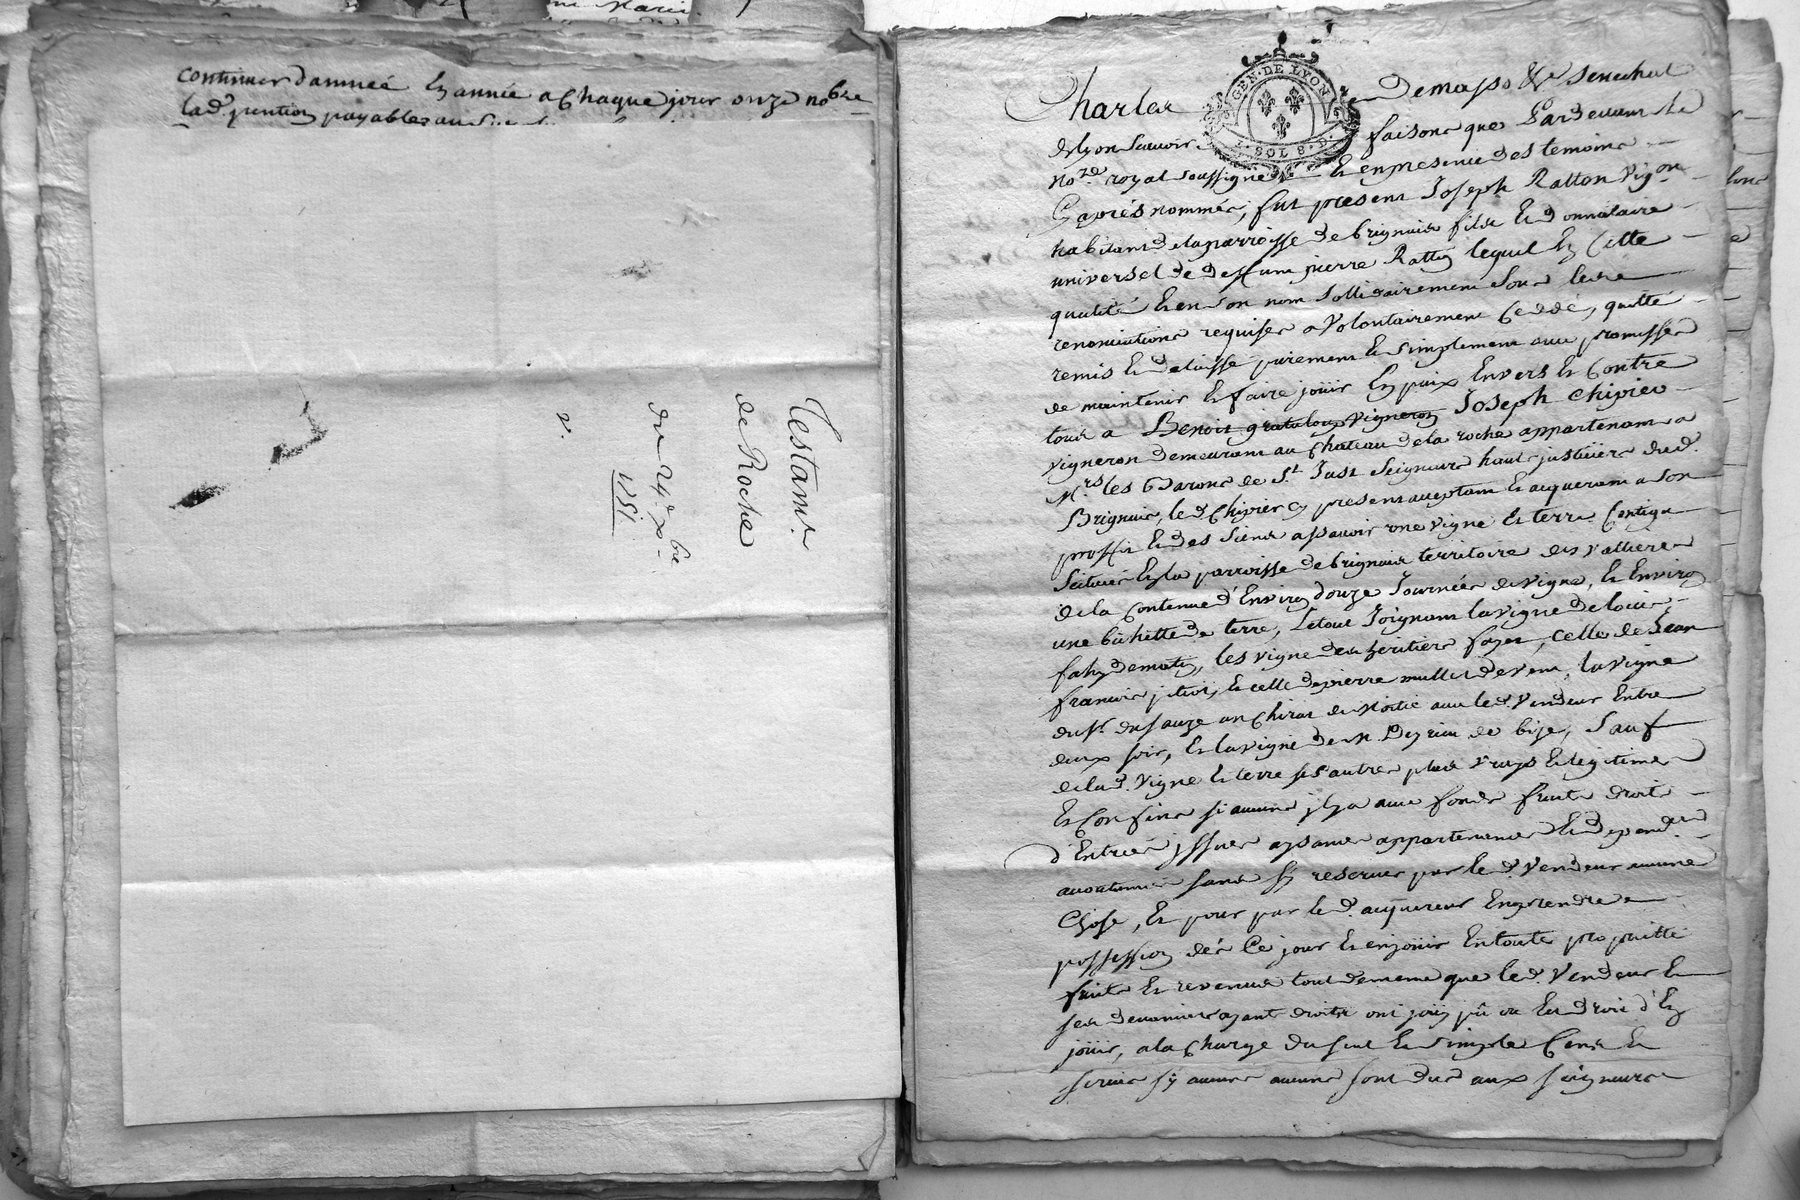 Marie
continuer dannée En année a Chaque jour onze nobre
lad. pention payables au
Testamt.
de Roche
du 24e xbre
1751
v.
GEN. DE LYON
SOLS
Charles Demasso &a Senechal
de lyon Scavoir faisons que Pardevant le
Nore. royal soussigné Et en presence des temoins
Cy aprés nommés, fut present Joseph Ratton Vigon
habitant de la parroisse de brignais fils Et donnataire
universel de deffunt pierre Ratton lequel En Cette
qualité Et en son nom sollidairement sous les
renonciations requises a Volontairement Ceddé, quitté
remis Et delaissé purement Et simplement avec promesse
de maintenir Et faire joüir En paix Envers Et Contre
tous a Benoit grataloup vigneron Joseph Chipier
vigneron demeurant au Chateau de la roche appartenant a
Mrs. les Barons de St. Just Seigneurs hauts justiciers dud.
Brignais, led. Chipier Cy present acceptant Et acquerant a son
proffit Et des siens a scavoir une vigne Et terre Contigue
Scituées En la parroisse de brignais territoire des vallieres
de la Contenue d'Environ douze Journées de vigne, Et Environ
une bichette de terre, Le tout Joignant la vigne de
de matin, les vigne des heritiers fayet, celle de Jean
francois Et celle de pierre mullet de vent, la vigne
du Sr. dusauze un Chirat de Moitié avec led. Vendeur Entre
deux soir, Et la vigne de M de bize, Sauf
de lad. Vigne Et terre ses autres plus vrays Et legitimes
Et Confins si aucuns il y a avec fonds fruits droits
d'Entrées issues aysances appartenances Et dependces
accoutumées sans sy reserver par led. Vendeur aucune
Chose, Et pour par led. acquereur En prendre
possession dés Ce jour Et en joüir En toute proprietté
fruits Et revenus tout de meme que led. Vendeur Et
ses devanciers ayant droits ont joüy pû ou Eu droit d'En
joüir, a la Charge du seul Et simple Cens Et
servis sy aucuns aucuns sont dus aux seigneurs